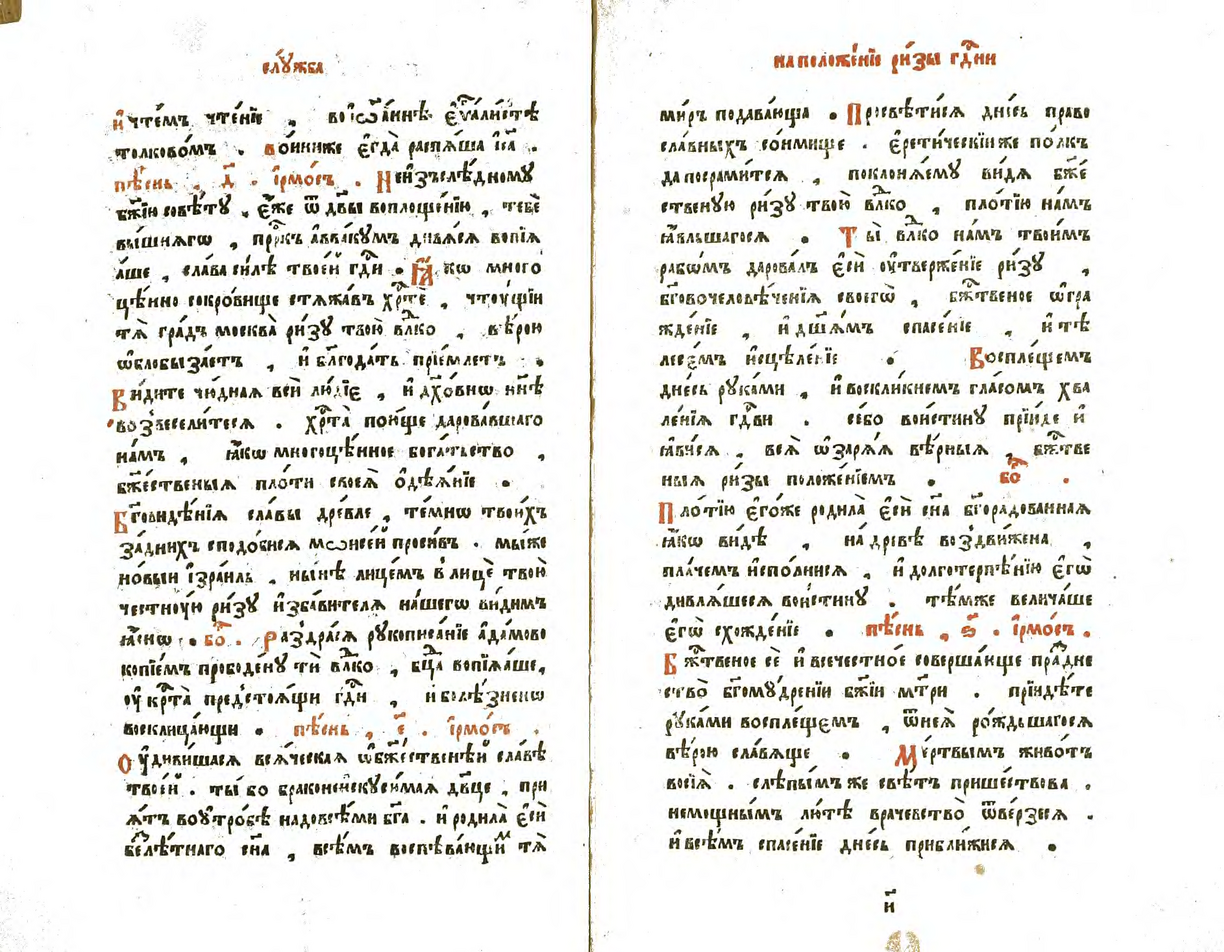 слꙋ́жба
и҆чте́мъ чте́нїе , во і҆ѡа́ннѣ є҆ѵⷢ҇али́стѣ
толково́мъ . во́ини же є҆гда̀ распѧ́ша і҆са .
пѣ́снь , д҃ . і҆рмо́съ . Неи҆зъслѣ́дномꙋ
бж҃їю совѣ́тꙋ , є҆́же ѿ дв҃ы воплоще́нїю , тебѐ
вы́шнѧгѡ , прⷪ҇ркъ а҆ввакꙋ́мъ дивѧ́сѧ вопїѧ́
а҆ше , сла́ва си́лѣ твоє́й гдⷭ҇и . Ꙗ҆́кѡ много
цѣ́нно сокро́вище стѧжа́въ хрⷭ҇тѐ , чтꙋ́щїи
тѧ̀ гра́дъ москва̀ ри́зꙋ твою̀ влⷣко , вѣ́рою
ѡ҆блобыза́етъ , и҆ блгⷣода́ть прїе́млетъ .
Ви́дите чю́дная всѝ лю́дїє , и҆ дх҃о́внѡ нн҃ѣ
возвесели́тесѧ . хрⷭ҇та̀ пою́ще дарова́вшаго
на́мъ , ꙗ҆́кѡ многоцѣ́нное бога́тьство ,
бж҃ественыѧ пло́ти своеѧ̀ ѻ҆дѣѧ́нїе .
Бг҃ови́дѣнїѧ сла́вы дре́вле , те́мнѡ твои́хъ
за́днихъ сподо́бисѧ мѡисе́й проси́въ . мы́ же
но́выи і҆зра́иль , ны́нѣ лице́мъ в лицѐ твою̀
честнꙋ́ю ри́зꙋ и҆зба́вителѧ на́шегѡ ви́димъ
ꙗ҆́снѡ . бо҃ . Раздра́сѧ рꙋкописа́нїе а҆да́мово
копїе́мъ прободе́нꙋ тѝ влⷣко , бц҃а вопїѧ́ше,
ᲂу҆ крⷭ҇та̀ предстоѧ́щи гдⷭ҇и , и҆ болѣ́зненѡ
восклица́ющи . пѣ́снь , є҃ . і҆рмо́съ .
Оу҆диви́шасѧ всѧ́ческая ѡ҆ бж҃е́ственѣй сла́вѣ
твое́й . ты́ бо браконеискꙋси́мая дв҃це , прї
ѧ́тъ во ᲂу҆тро́бѣ надовсѣ́ми бг҃а . и҆ родила̀ є҆сѝ
безлѣ́тнаго сн҃а , всѣ́мъ воспѣва́ющимъ тѧ̀
на положе́нїе ри́зы гдⷭ҇ни
ми́ръ подава́юща . Просвѣти́сѧ дне́сь право
сла́вныхъ со́нмище . є҆рети́ческїи же по́лкъ
да посрами́тсѧ , поклонѧ́емꙋ ви́дѧ бж҃е
ственꙋю ри́зꙋ твою̀ влⷣко , пло́тїю на́мъ
ꙗ҆́вльшагосѧ . Ты̀ влⷣко на́мъ твои́мъ
рабѡ́мъ дарова́лъ є҆сѝ ᲂу҆твержде́нїе ри́зꙋ ,
бг҃овочеловѣ́ченїѧ своегѡ̀ , бжⷭ҇твеное ѡ҆гра
жде́нїе , и҆ дш҃ѧ́мъ спасе́нїе , и҆ тѣ
лесе́мъ и҆сцѣле́нїе . Воспле́щемъ
дне́сь рꙋка́ми , и҆ воскли́кнемъ гла́сомъ хва
ле́нїѧ гдⷭ҇ви . се́ бо вои́стинꙋ прїи́де и҆
ꙗ҆ви́сѧ , всѧ̀ ѡ҆заря́ѧ вѣ́рныѧ , бжⷭ҇тве
ныѧ ри́зы положе́нїемъ . бо҃ .
Пло́тїю є҆го́же родила̀ є҆сѝ сн҃а бг҃ора́дованная
ꙗ҆́кѡ ви́дѣ , на дре́вѣ воздви́жена ,
пла́чемъ и҆спо́лнисѧ , и҆ долготерпѣ́нїю є҆гѡ̀
дивлѧ́шесѧ вои́стинꙋ . тѣ́мже велича́ше
є҆гѡ̀ схожде́нїе . пѣ́снь , ѕ҃ . і҆рмо́съ .
Бжⷭ҇твеное сѐ и҆ всечестно́е соверша́юще пра́здне
ство̀ бг҃омꙋ́дренїи бж҃їи мт҃ри . прїиди́те
рꙋка́ми воспле́щемъ , ѿнеѧ̀ ро́ждьшагосѧ
вѣ́рою сла́вѧще . Ме́ртвымъ живо́тъ
восїѧ̀ . слѣпы́мъ же свѣ́тъ прише́ствова .
немощны́мъ лю́тѣ врачевство̀ ѿве́рзесѧ .
и҆ всѣ́мъ спасе́нїе дне́сь прибли́жисѧ .
и҃